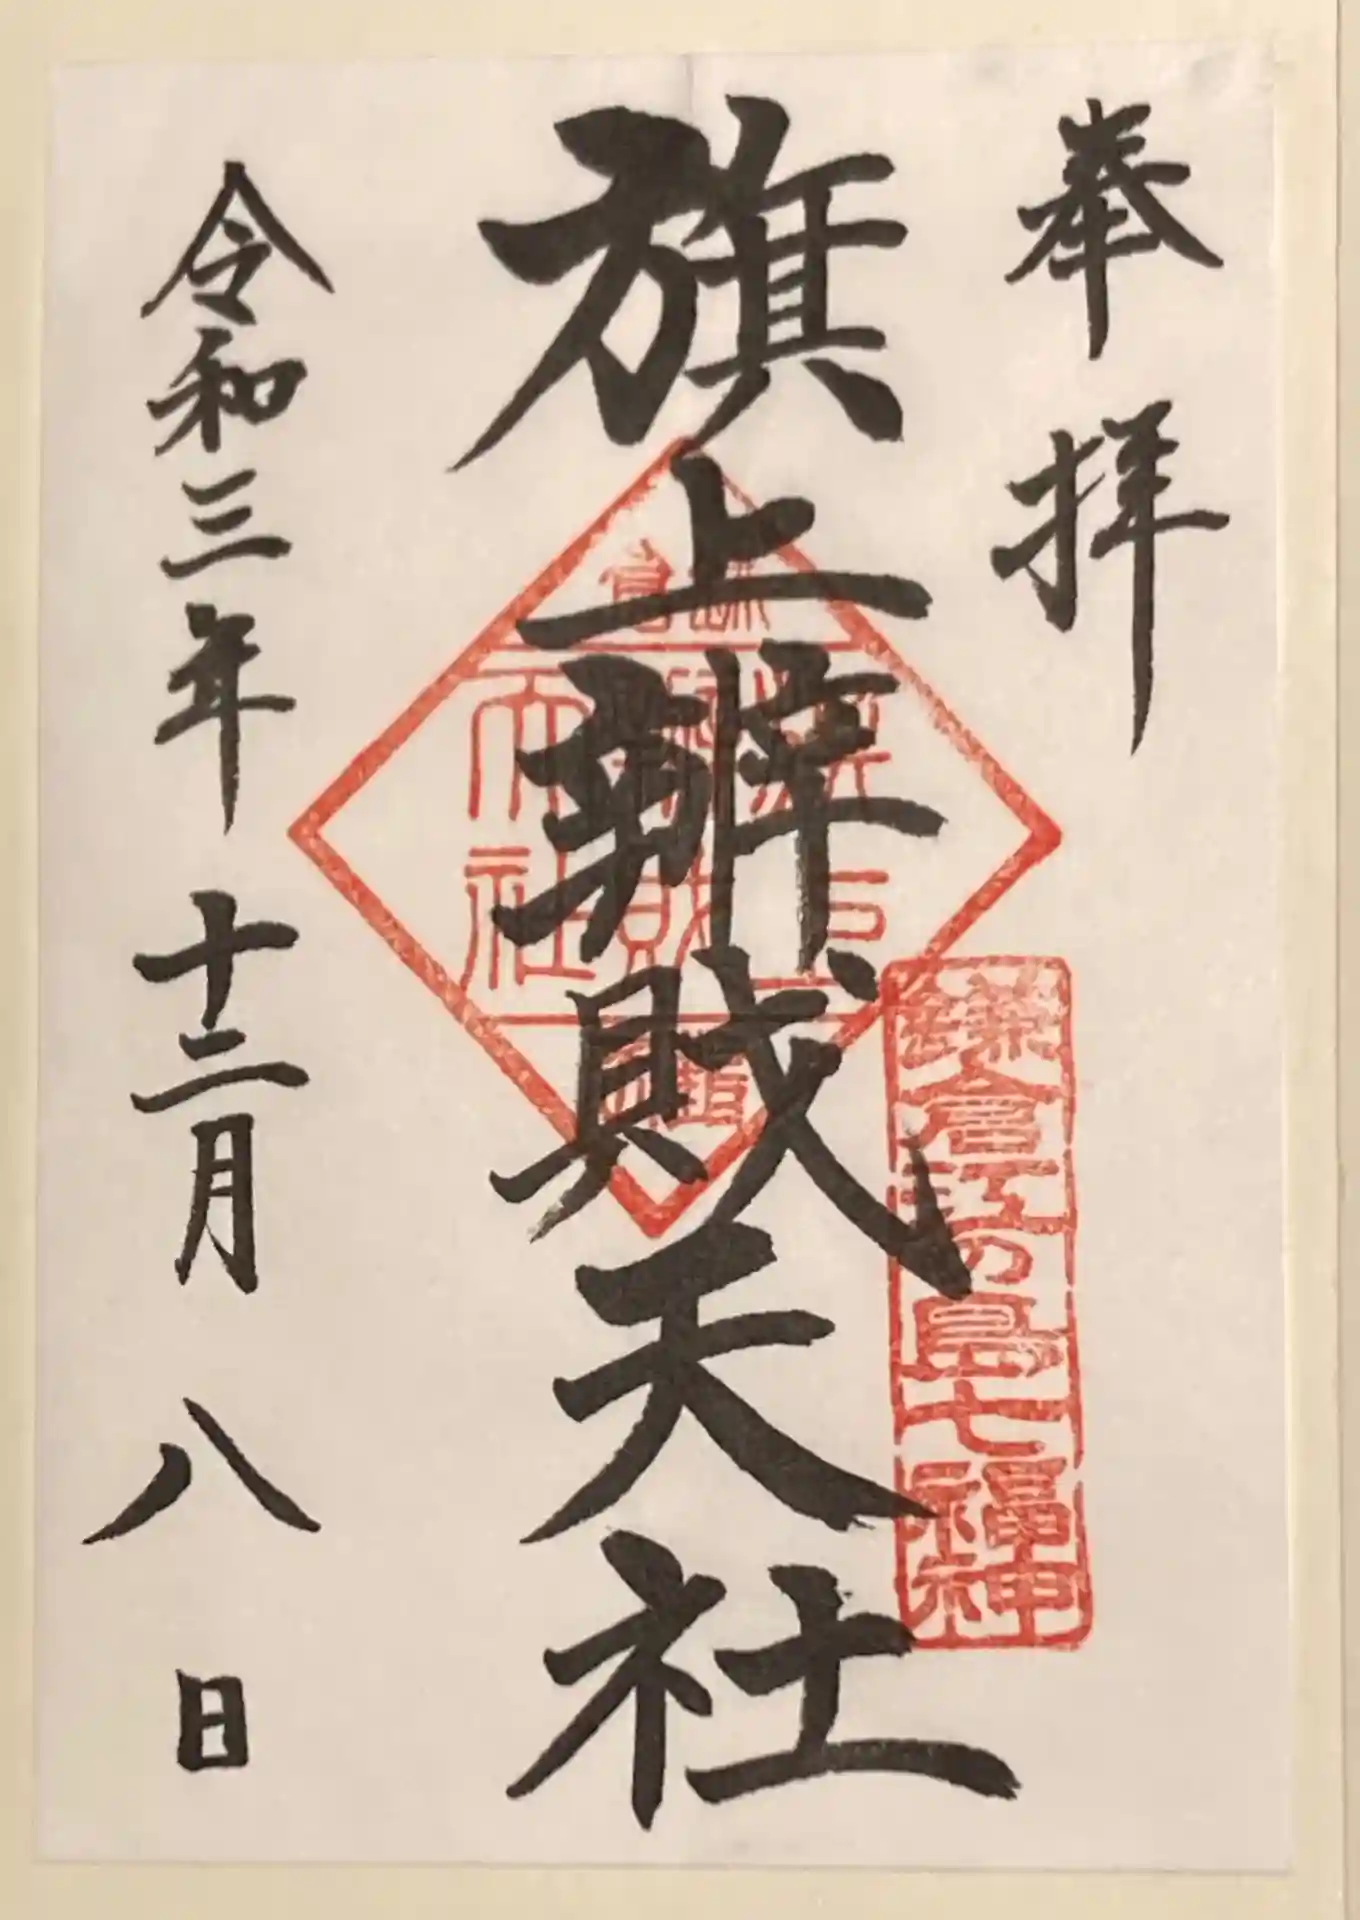 奉拝
旗上辨財天社
鎌倉江の島七福神
鎌倉
旗上
辨財
天社
令和三年十二月八日